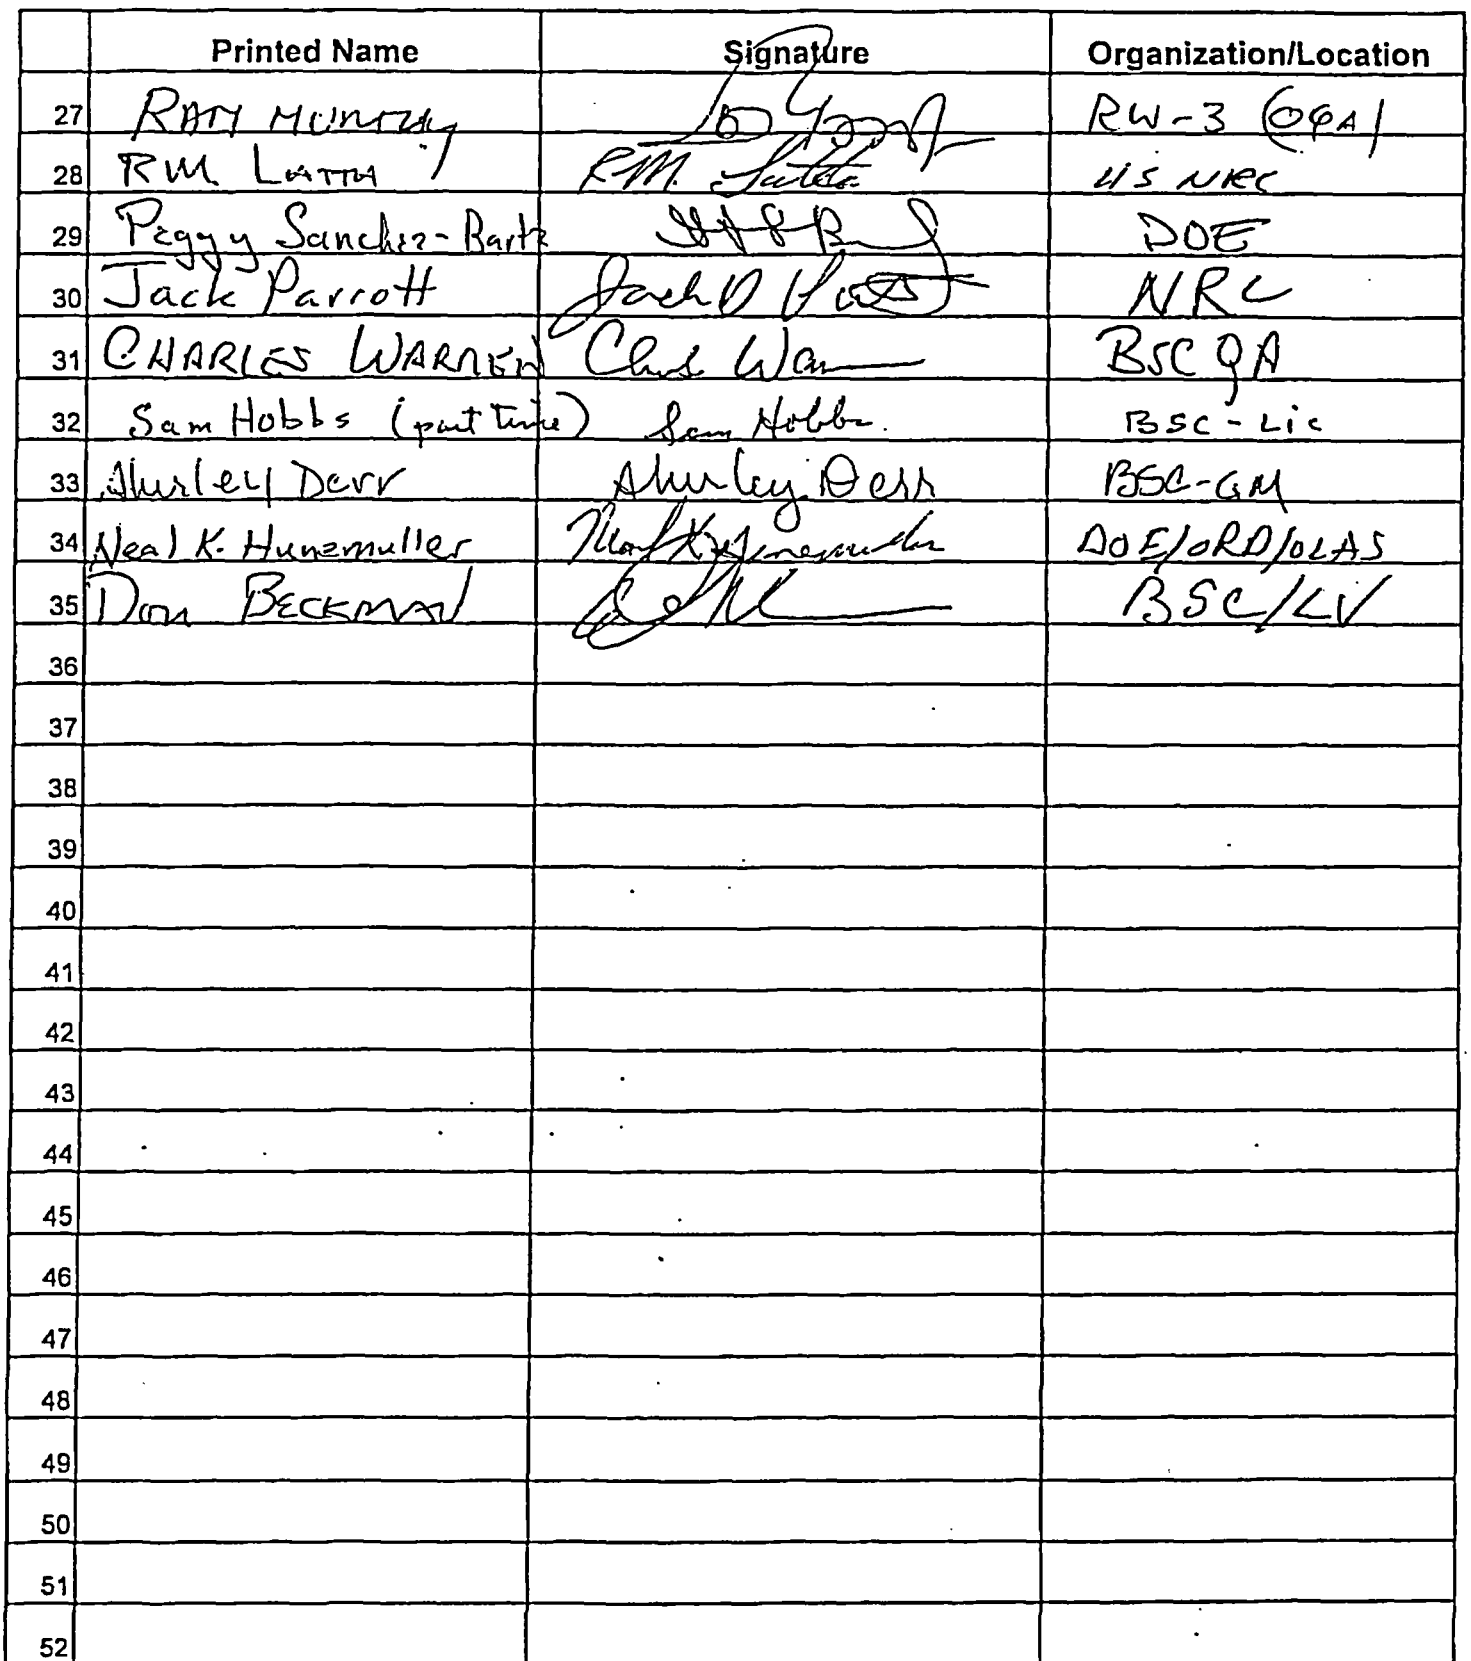 Printed Name Signature Organization/Location
27 RAM MURTHY RW-3 (OQA)
28 RM. LATTA R.M. Latta US NRC
29 Peggy Sanchez-Bartz DOE
30 Jack Parrott Jack D Parrott NRC
31 CHARLES WARREN BSC QA
32 Sam Hobbs (part time) Sam Hobbs. BSC - Lic
33 Shirley Derr Shirley Derr BSC-GM
34 Neal K. Hunemuller Neal K. Hunemuller DOE/ORD/OLAS
35 Don BECKMAN BSC/LV
36
37
38
39
40
41
42
43
44
45
46
47
48
49
50
51
52